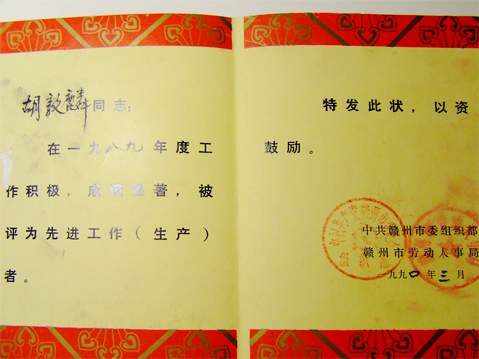 胡敦麟同志：
在一九八九年度工
作积极，成绩显著，被
评为先进工作（生产）
者。
特发此状，以资
鼓励。
中共赣州市委组织部
赣州市劳动人事局
一九九〇年三月